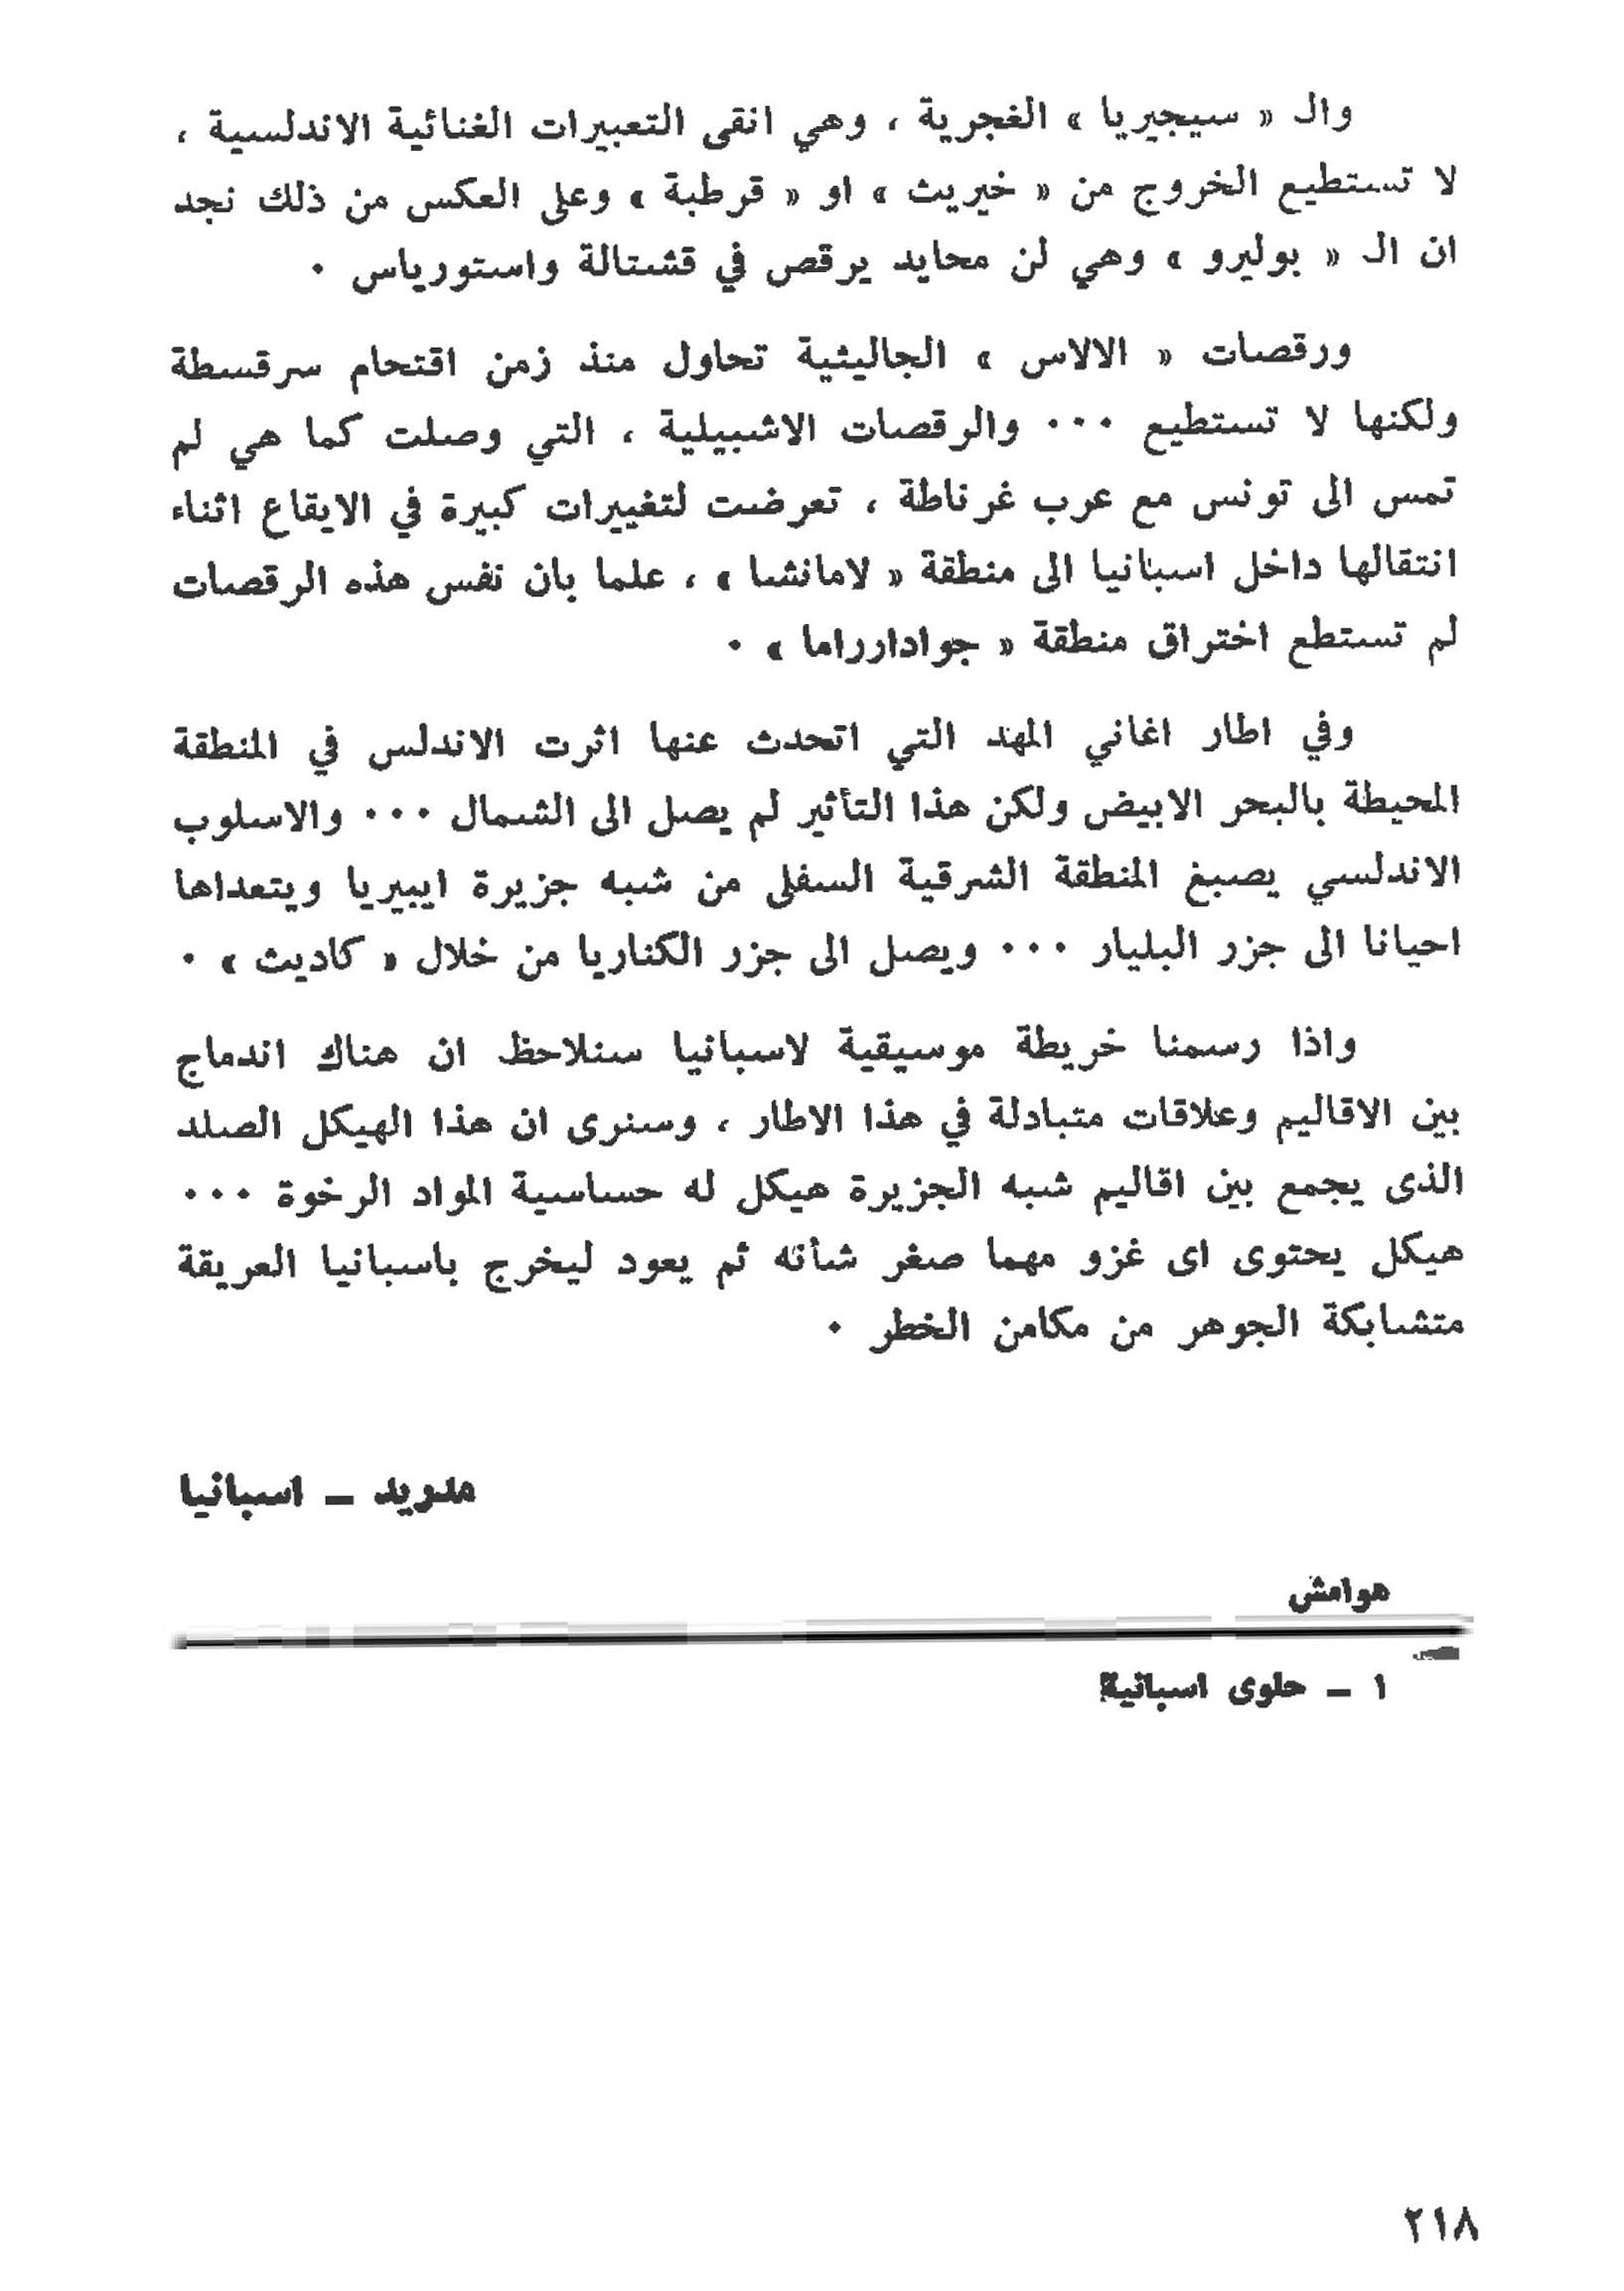 وال « سيجيريا » الغجرية ، وهي انقى التعبيرات الغنائية الاندلسية ،
لا تستطيع الخروج من « خيريث » او « قرطبة » وعلى العكس من ذلك نجد
ان ال « بوليرو » وهي لن محايد يرقص في قشتالة واستورياس ٠
ورقصات « الالاس » الجاليثية تحاول منذ زمن اقتحام سرقسطة
ولكنها لا تستطيع ٠٠٠ والرقصات الاشبيلية ، التي وصلت كما هي لم
تمس الى تونس مع عرب غرناطة ، تعرضت لتغييرات كبيرة في الايقاع اثناء
انتقالها داخل اسبانيا الى منطقة « لامانشا » ، علما بان نفس هذه الرقصات
لم تستطع اختراق منطقة « جوادارراما » ٠
وفي اطار اغاني المهد التي اتحدث عنها اثرت الاندلس في المنطقة
المحيطة بالبحر الابيض ولكن هذا التأثير لم يصل الى الشمال ٠٠٠ والاسلوب
الاندلسي يصبغ المنطقة الشرقية السفلى من شبه جزيرة ايبيريا ويتعداها
احيانا الى جزر البليار ٠٠٠ ويصل الى جزر الكناريا من خلال « كاديث » ٠
واذا رسمنا خريطة موسيقية لاسبانيا سنلاحظ ان هناك اندماج
بين الاقاليم وعلاقات متبادلة في هذا الاطار ، وسنرى ان هذا الهيكل الصلد
الذى يجمع بين اقاليم شبه الجزيرة هيكل له حساسية المواد الرخوة ٠٠٠
هيكل يحتوى اى غزو مهما صغر شأنه ثم يعود ليخرج باسبانيا العريقة
متشابكة الجوهر من مكامن الخطر ٠
مدريد ــ اسبانيا
هوامش
١ ــ حلوى اسبانية
٢١٨